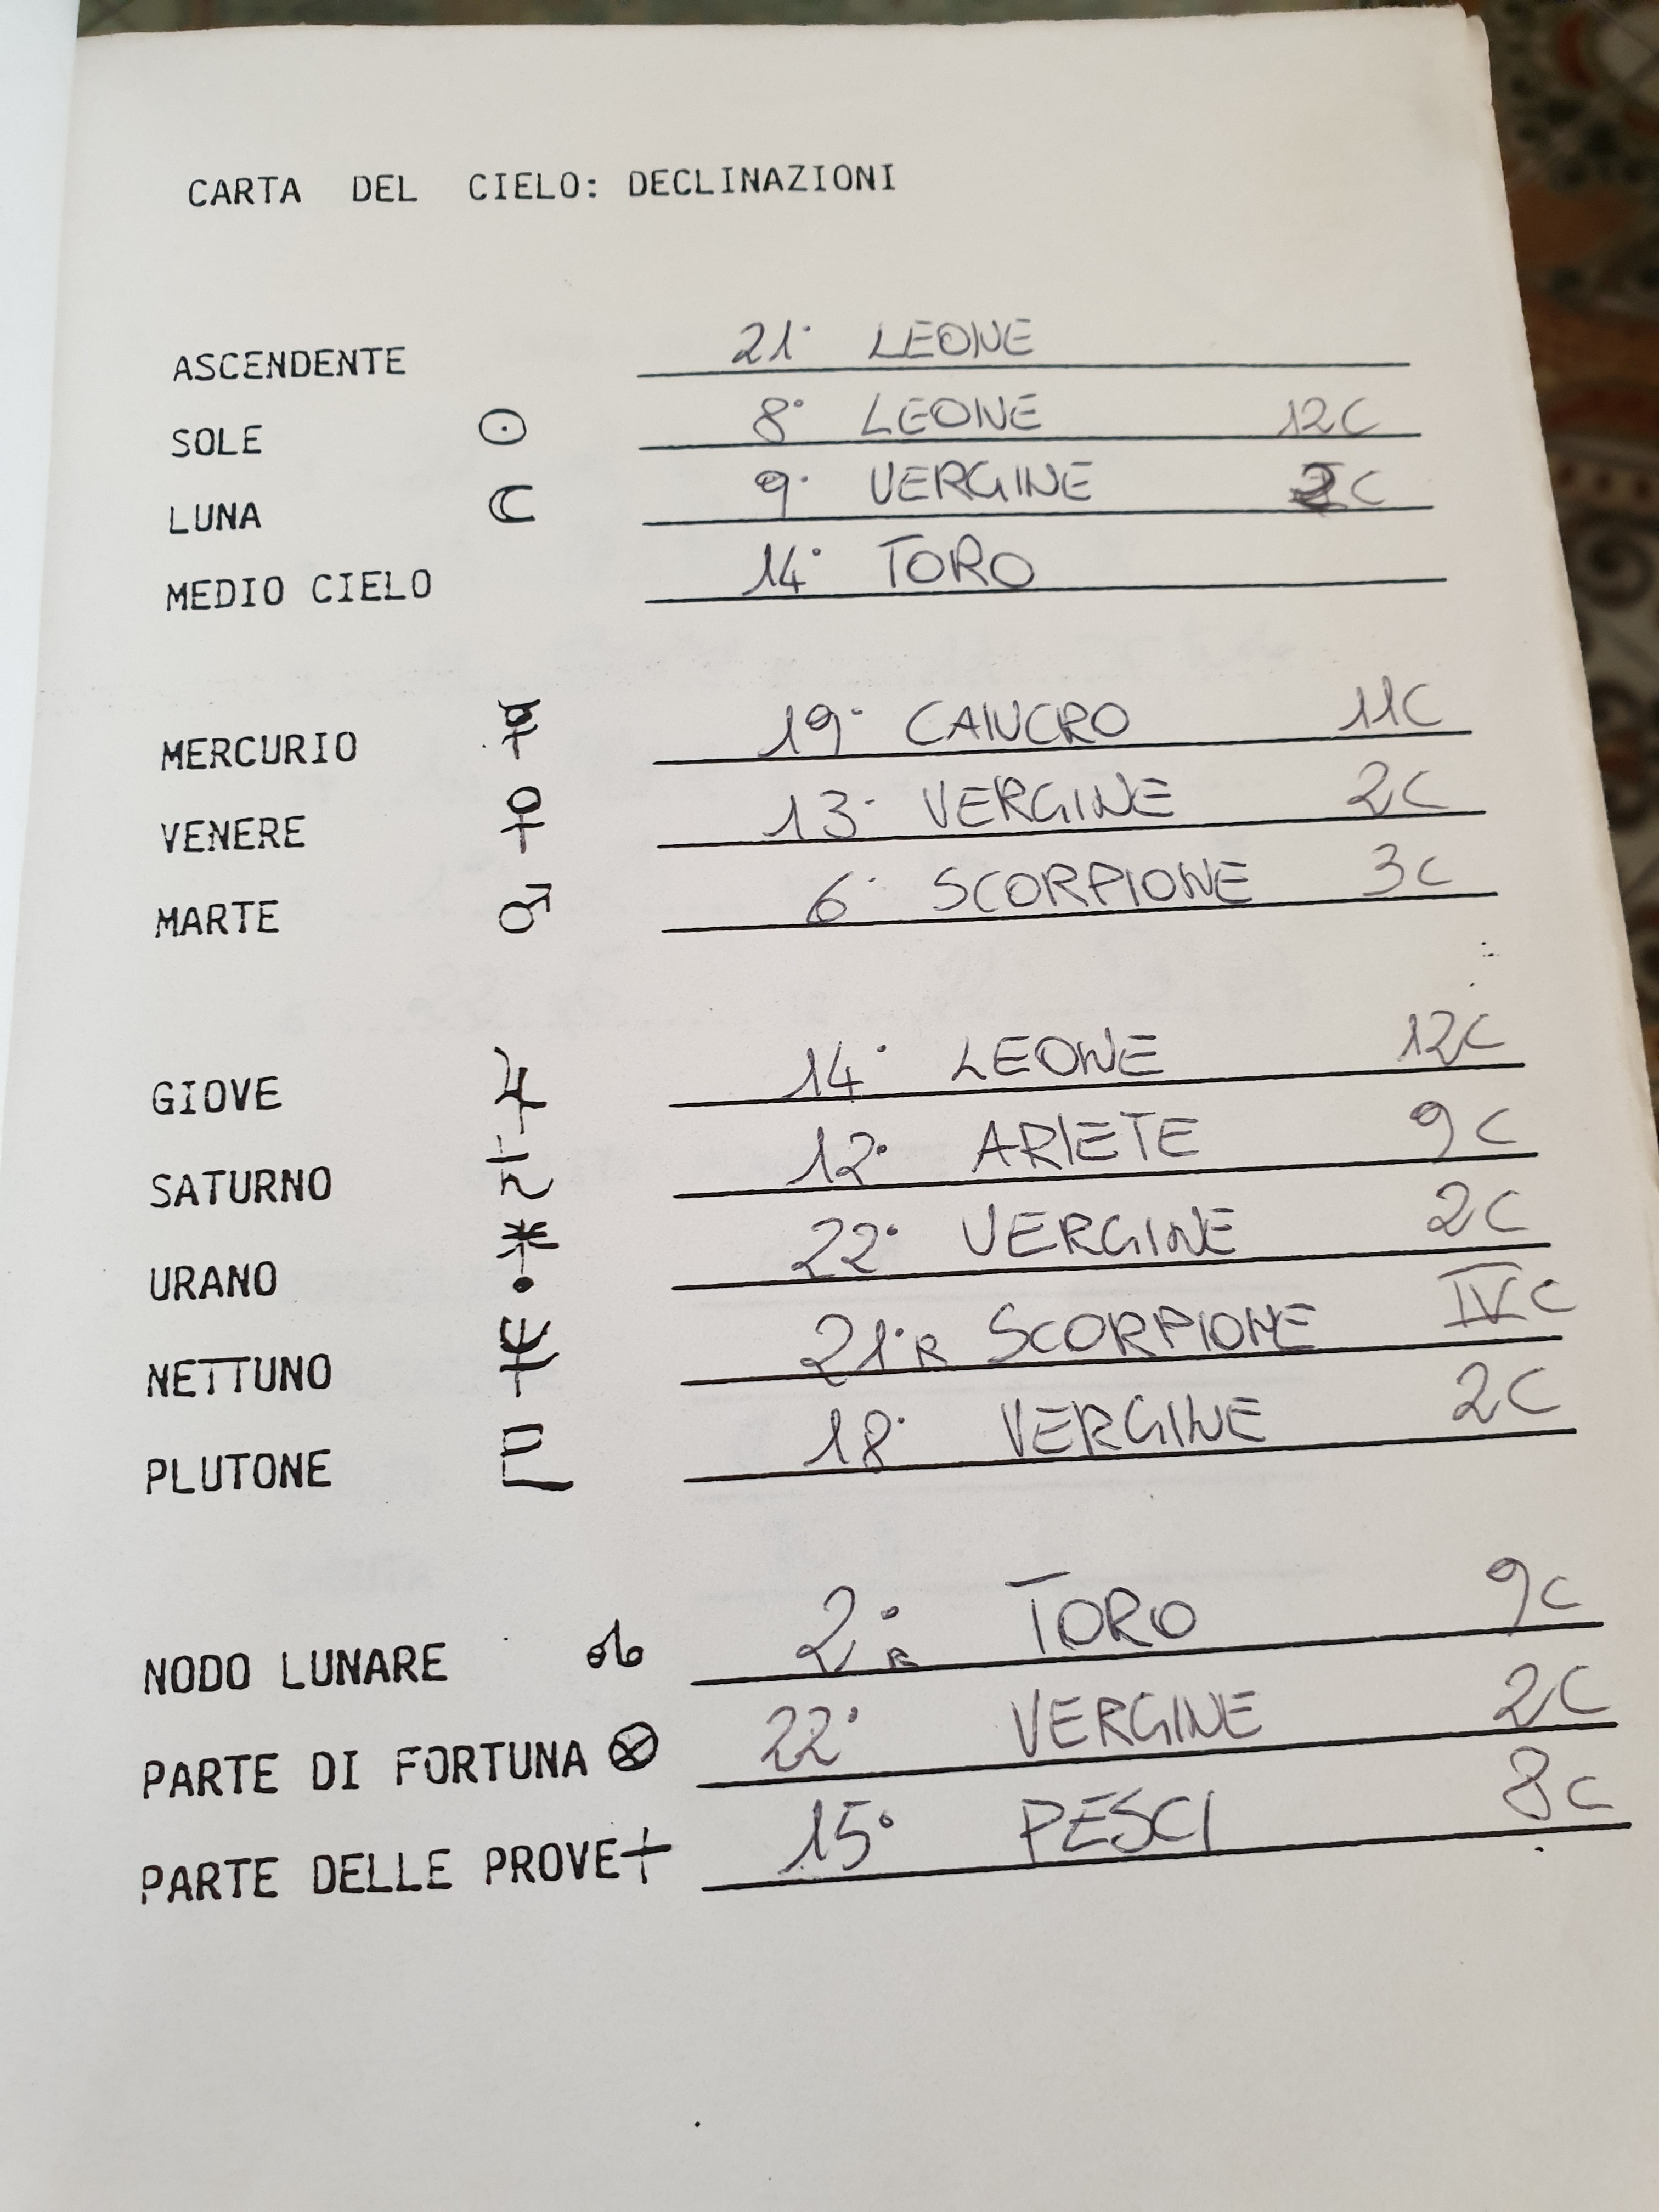 CARTA DEL CIELO: DECLINAZIONI
ASCENDENTE 21° LEONE
SOLE ☉ 8° LEONE 12C
LUNA ☾ 9° VERGINE 2C
MEDIO CIELO 14° TORO
MERCURIO ☿ 19° CANCRO 11C
VENERE ♀ 13° VERGINE 2C
MARTE ♂ 6° SCORPIONE 3C
GIOVE ♃ 14° LEONE 12C
SATURNO ♄ 12° ARIETE 9C
URANO ⛢ 22° VERGINE 2C
NETTUNO ♆ 21°R SCORPIONE IVC
PLUTONE ♇ 18° VERGINE 2C
NODO LUNARE ☊ 2°R TORO 9C
PARTE DI FORTUNA ⊗ 22° VERGINE 2C
PARTE DELLE PROVE + 15° PESCI 8C